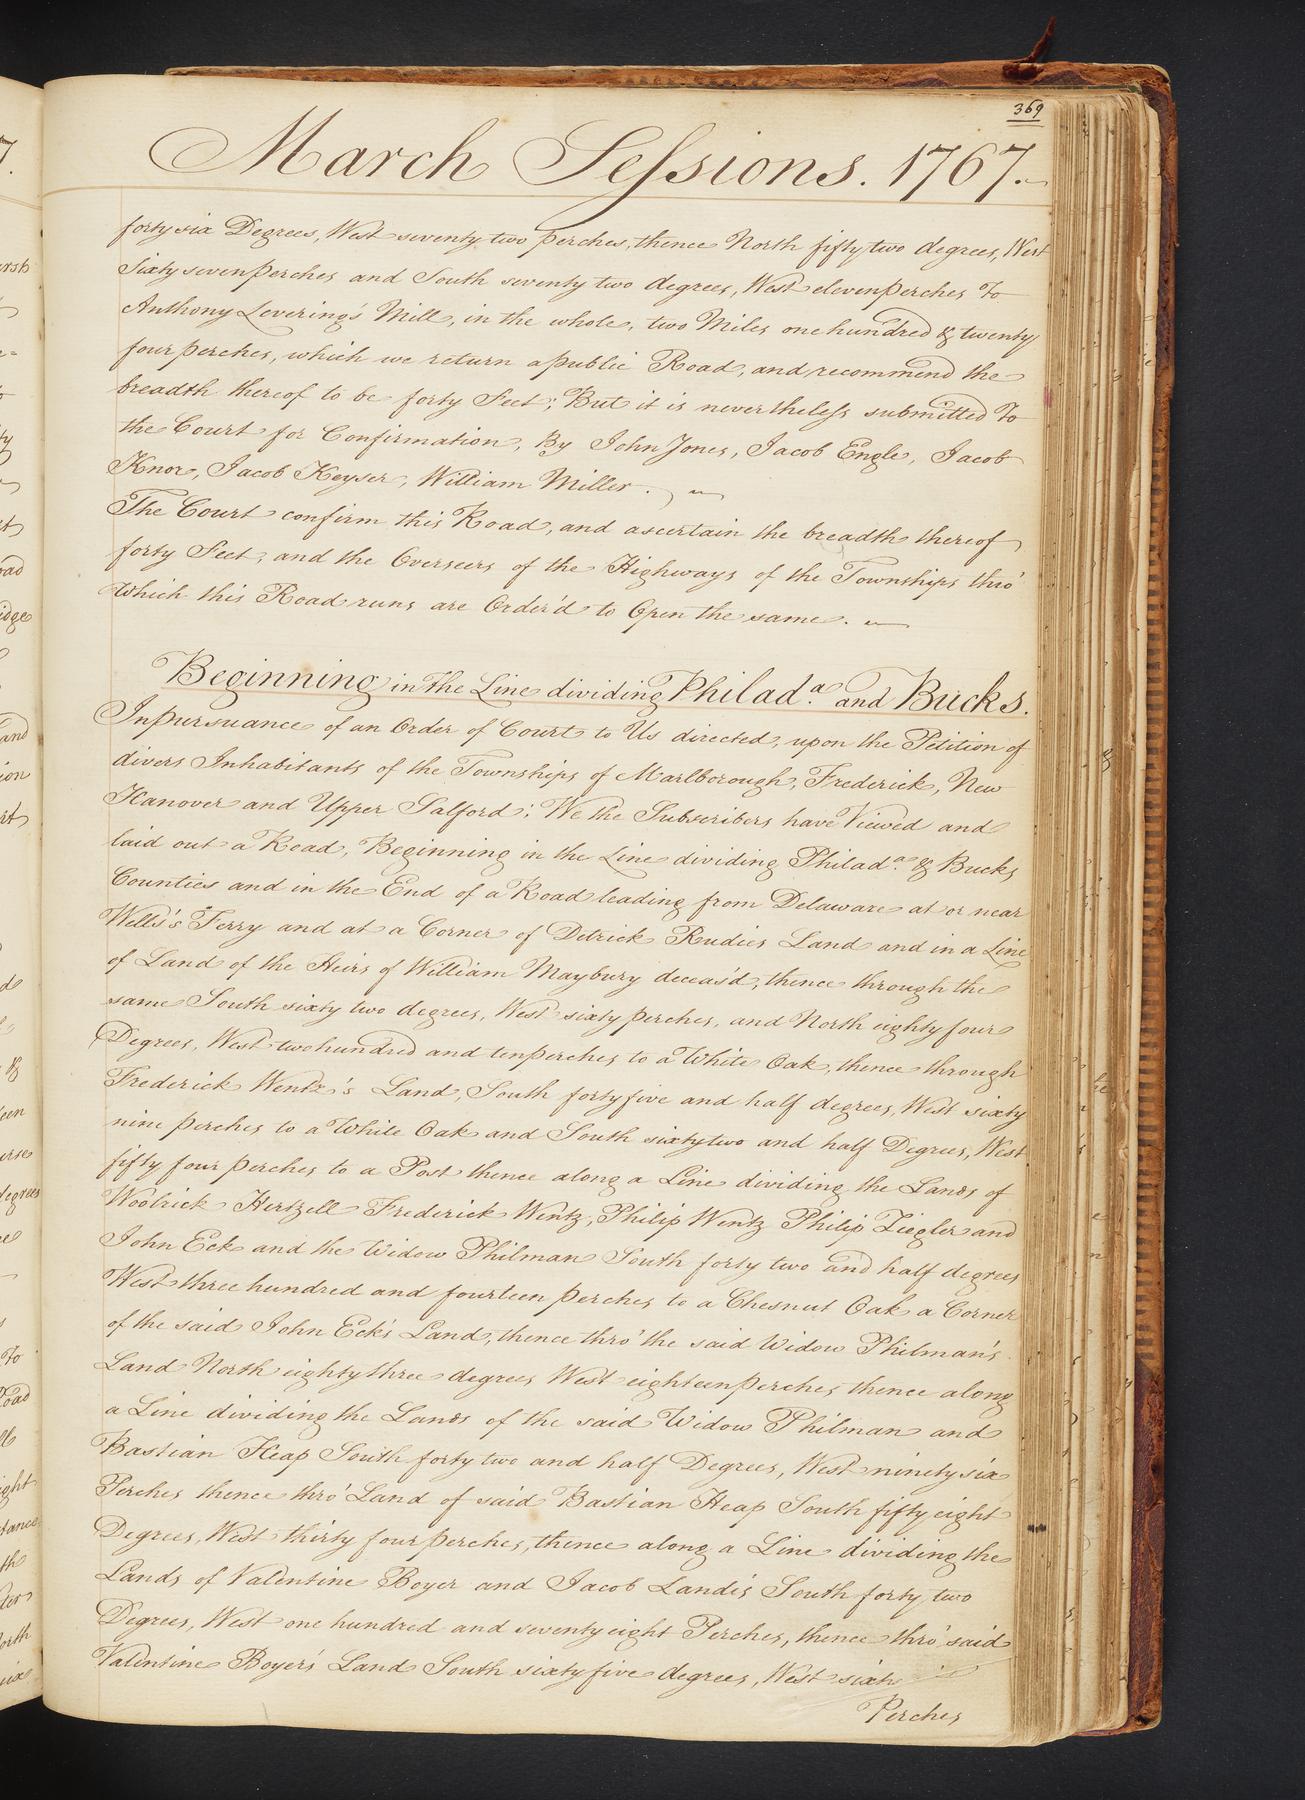 369
March Sessions. 1767.
forty six Degrees, West seventy two perches, thence North fifty two degrees, West
Sixty seven perches and South seventy two degrees, West eleven perches To
Anthony Levering's Mill, in the whole, two Miles one hundred & twenty
four perches, which we return a public Road, and recommend the
breadth thereof to be forty Feet; But it is nevertheless submitted To
the Court for Confirmation, By John Jones, Jacob Engle, Jacob
Knor, Jacob Keyser, William Miller.
The Court confirm this Road, and ascertain the breadth thereof
forty Feet, and the Overseers of the Highways of the Townships thro'
which this Road runs are Order'd to Open the same.
Beginning in the Line dividing Philad.a and Bucks.
In pursuance of an Order of Court to Us directed, upon the Petition of
divers Inhabitants of the Townships of Marlborough, Frederick, New
Hanover and Upper Salford; We the Subscribers have Viewed and
laid out a Road, Beginning in the Line dividing Philad.a & Bucks
Counties and in the End of a Road leading from Delaware at or near
Wells's Ferry and at a Corner of Detrick Rudies Land and in a Line
of Land of the Heirs of William Maybury deceas'd, thence through the
same South sixty two degrees, West sixty perches, and North eighty four
Degrees, West two hundred and ten perches to a White Oak, thence through
Frederick Wentz's Land, South forty five and half degrees, West sixty
nine perches to a White Oak and South sixty two and half Degrees, West
fifty four perches to a Post thence along a Line dividing the Lands of
Woolrick Hertzell Frederick Wentz, Philip Wentz Philip Ziegler and
John Eck and the Widow Philman South forty two and half degrees
West three hundred and fourteen perches to a Chesnut Oak a Corner
of the said John Eck's Land, thence thro' the said Widow Philman's
Land North eighty three degrees West eighteen perches thence along
a Line dividing the Lands of the said Widow Philman and
Bastian Heap South forty two and half Degrees, West ninety six
Perches thence thro' Land of said Bastian Heap South fifty eight
Degrees, West thirty four perches, thence along a Line dividing the
Lands of Valentine Boyer and Jacob Landis South forty two
Degrees, West one hundred and seventy eight Perches, thence thro' said
Valentine Boyer's Land South sixty five degrees, West sixty
Perches